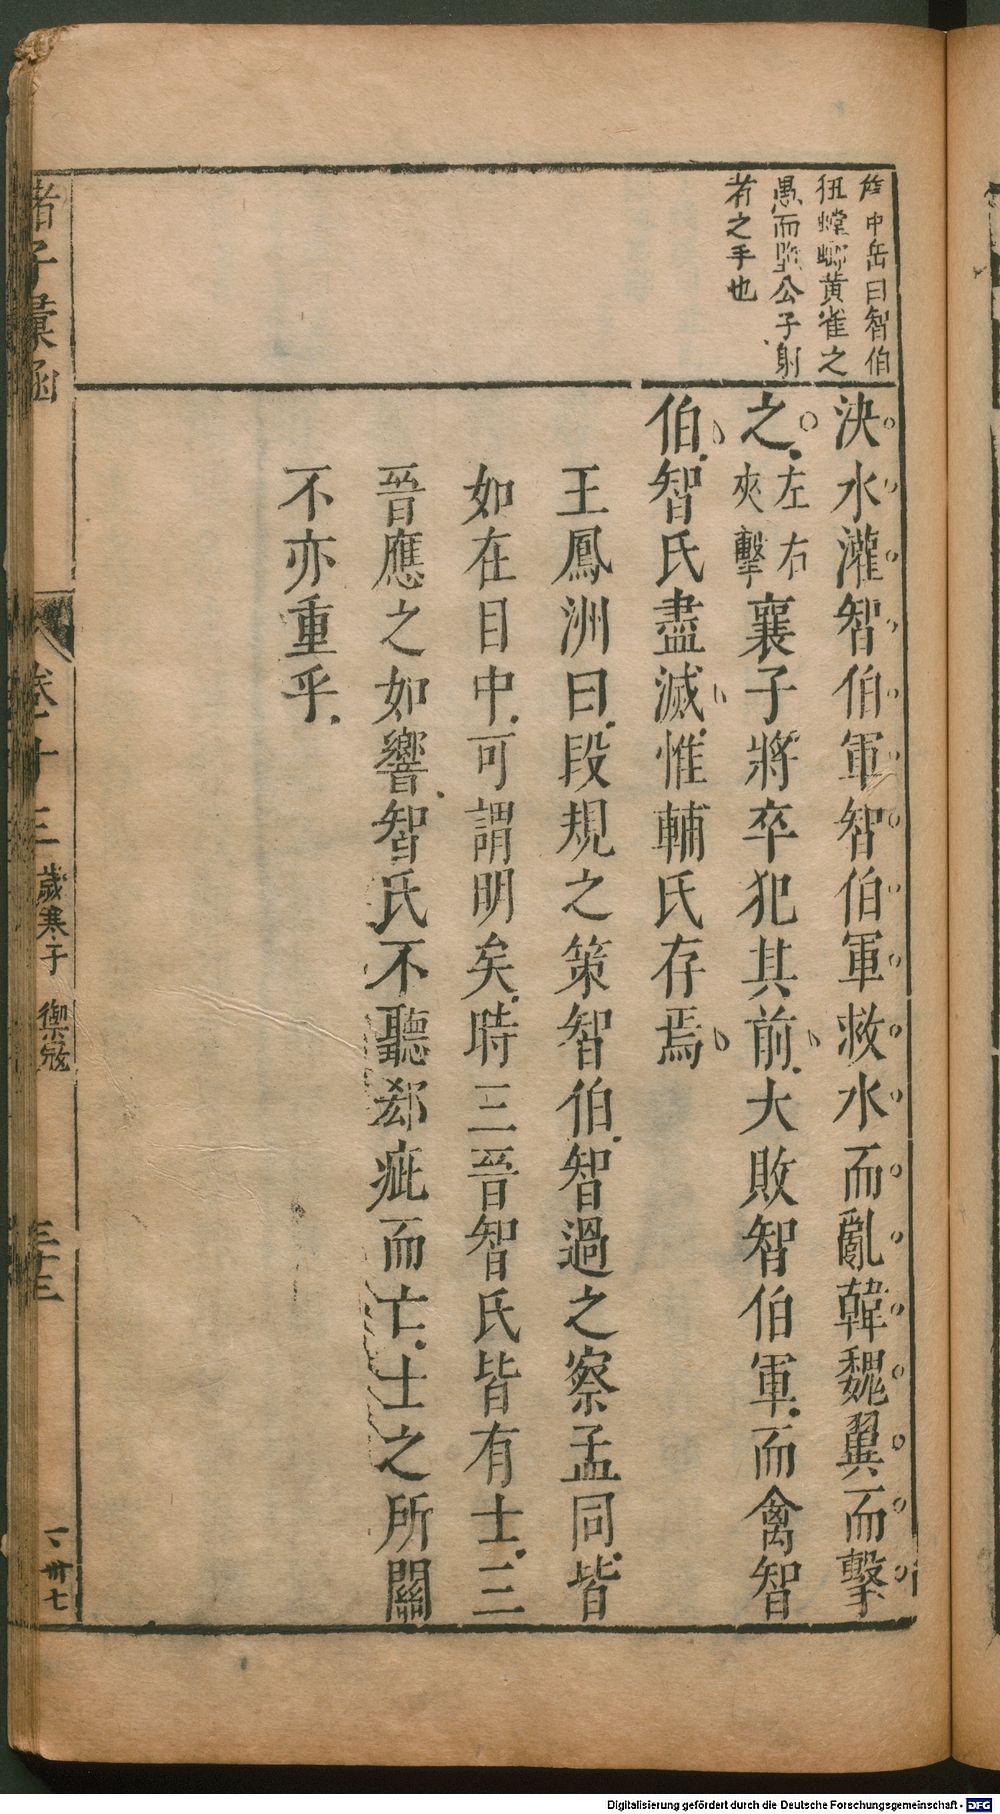 中岳曰智伯
狃螳螂黃雀之
愚而㢤公子射
者之手也
決水灌智伯軍智伯軍救水而亂韓魏翼而擊
之左右夾擊襄子將卒犯其前大敗智伯軍而禽智
伯智氏盡滅惟輔氏存焉
王鳳洲曰段規之策智伯智過之察孟同皆
如在目中可謂明矣時三晉智氏皆有士三
晉應之如響智氏不聽郄疵而亡士之所關
不亦重乎
諸子彙函
卷十三
歲寒子
禦寇
三十三
一卅七
Digitalisierung gefördert durch die Deutsche Forschungsgemeinschaft - DFG